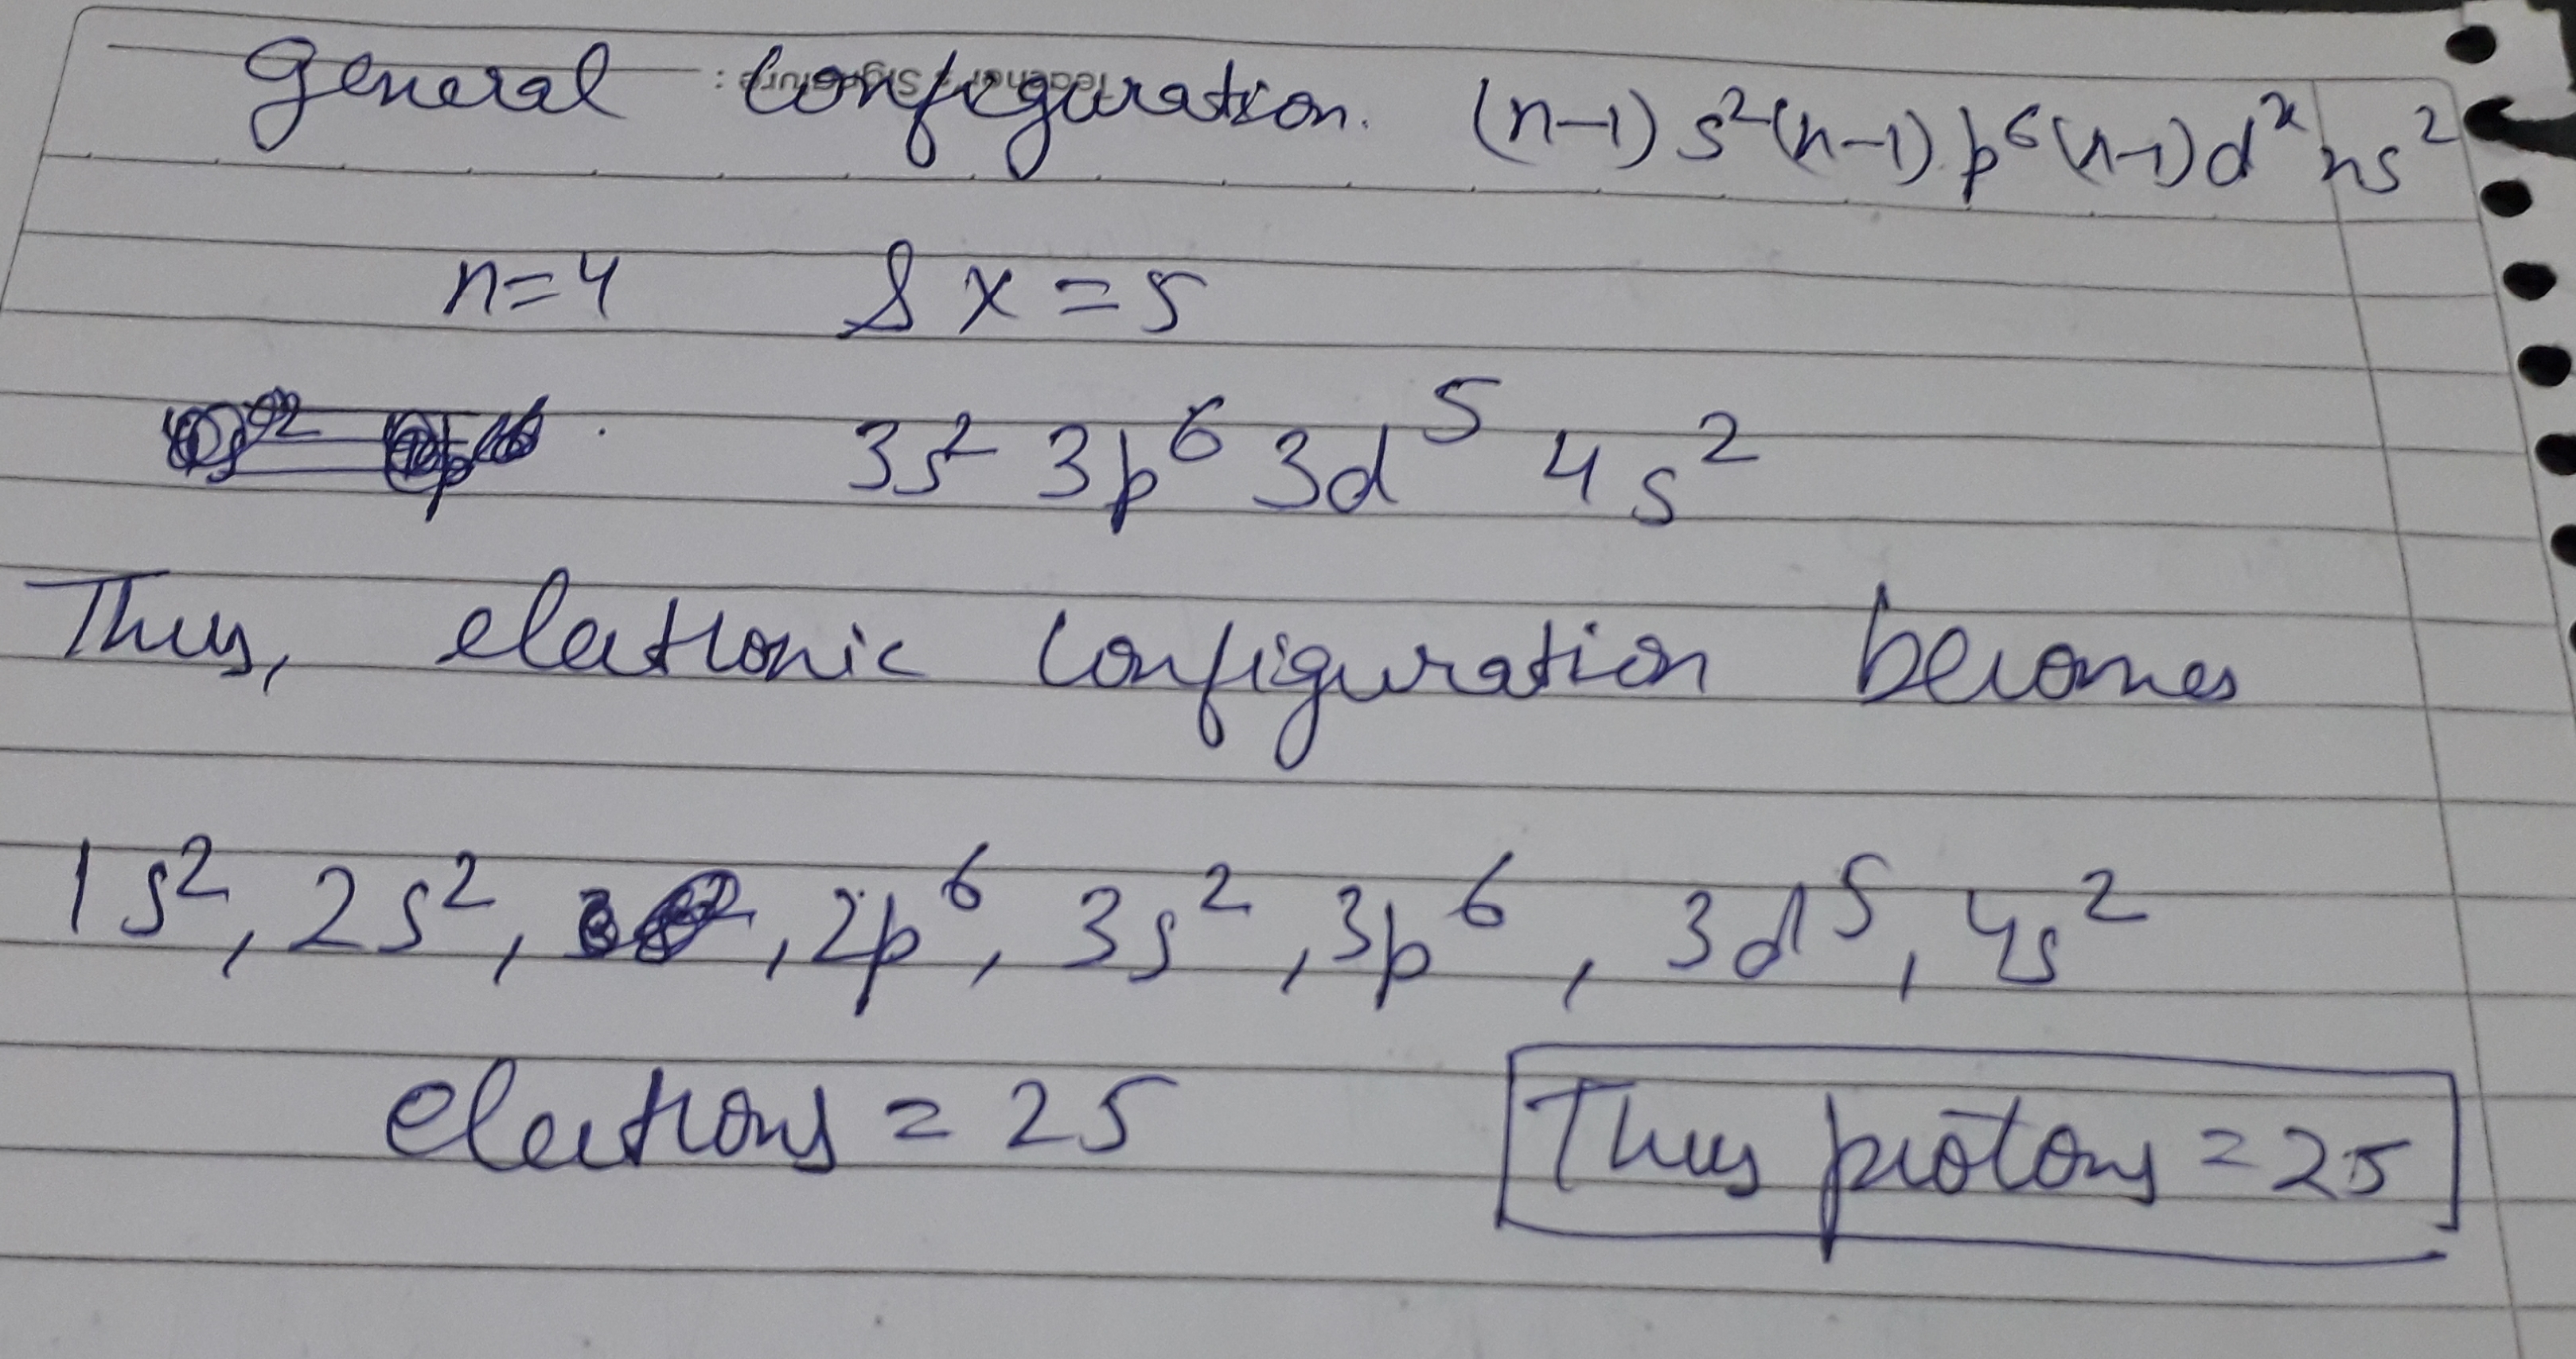 Teacher's Signature :
General Configuration. (n-1) s² (n-1) p⁶ (n-1) d ˣ ns²
n=4 & x = 5
3s² 3p⁶ 3d⁵ 4s²
Thus, electronic configuration becomes
1s², 2s², , 2p⁶, 3s², 3p⁶, 3d⁵, 4s²
electrons = 25
Thus protons = 25